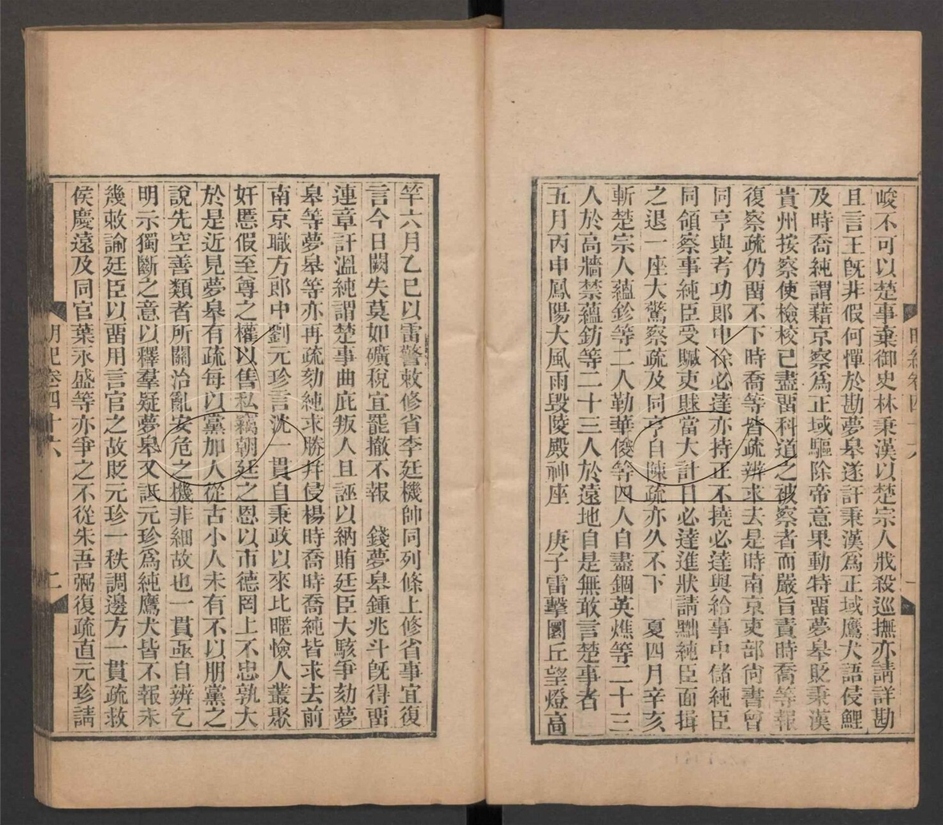 峻不可以楚事棄御史林秉漢以楚宗人戕殺巡撫亦請詳勘
且言王旣非假何憚於勘夢皋遂訐秉漢爲正域鷹犬語侵鯉
及時喬純謂藉京察爲正域驅除帝意果動特畱夢皋貶秉漢
貴州按察使檢校已盡畱科道之被察者而嚴旨責時喬等報
復察疏仍畱不下時喬等皆疏辨求去是時南京吏部尚書曾
同亨與考功郎中徐必達亦持正不撓必達與給事中儲純臣
同領察事純臣受贓吏賕當大計日必達進狀請黜純臣面揖
之退一座大驚察疏及同亨自陳疏亦久不下　夏四月辛亥
斬楚宗人蘊鉁等二人勒華㷿等四人自盡錮英燋等二十三
人於高牆禁蘊鈁等二十三人於遠地自是無敢言楚事者
五月丙申鳳陽大風雨毀陵殿神座　庚子雷擊圜丘望燈高
明紀卷四十六
竿六月乙巳以雷警敕修省李廷機帥同列條上修省事宜復
言今日闕失莫如礦稅宜罷撤不報　錢夢皋鍾兆斗旣得畱
連章訐溫純謂楚事曲庇叛人且誣以納賄廷臣大駭爭劾夢
皋等夢皋等亦再疏劾純求勝幷侵楊時喬時喬純皆求去前
南京職方郎中劉元珍言沈一貫自秉政以來比暱憸人叢聚
奸慝假至尊之權以售私竊朝廷之恩以市德罔上不忠孰大
於是近見夢皋有疏每以黨加人從古小人未有不以朋黨之
說先空善類者所關治亂安危之機非細故也一貫亟自辨乞
明示獨斷之意以釋羣疑夢皋又詆元珍爲純鷹犬皆不報未
幾敕諭廷臣以畱用言官之故貶元珍一秩調邊方一貫疏救
侯慶遠及同官葉永盛等亦爭之不從朱吾弼復疏直元珍請
明紀卷四十六
二